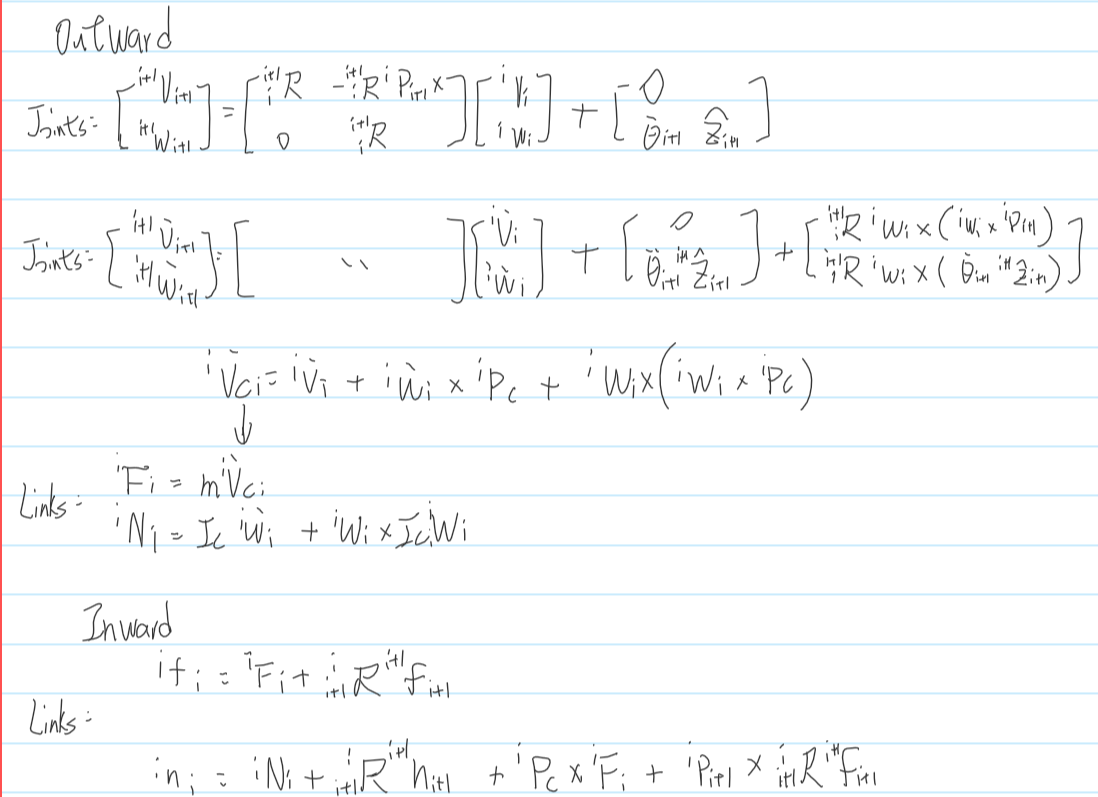 Outward
Joints: [^{i+1}V_{i+1} ; ^{i+1}W_{i+1}] = [^{i+1}_{i}R  -^{i+1}_{i}R ^{i}P_{i+1}× ; 0  ^{i+1}_{i}R] [^{i}V_{i} ; ^{i}W_{i}] + [0 ; θ̇_{i+1} Ẑ_{i+1}]
Joints: [^{i+1}V̇_{i+1} ; ^{i+1}Ẇ_{i+1}] = [ '' ] [^{i}V̇_{i} ; ^{i}Ẇ_{i}] + [0 ; θ̈_{i+1} ^{i+1}Ẑ_{i+1}] + [^{i+1}_{i}R ^{i}W_{i} × (^{i}W_{i} × ^{i}P_{i+1}) ; ^{i+1}_{i}R ^{i}W_{i} × (θ̇_{i+1} ^{i+1}Ẑ_{i+1})]
^{i}V̇_{ci} = ^{i}V̇_{i} + ^{i}Ẇ_{i} × ^{i}P_{c} + ^{i}W_{i} × (^{i}W_{i} × ^{i}P_{c})
↓
^{i}F_{i} = m ^{i}V̇_{ci}
Links:
^{i}N_{i} = I_{c} ^{i}Ẇ_{i} + ^{i}W_{i} × I_{c} ^{i}W_{i}
Inward
^{i}f_{i} = ^{i}F_{i} + ^{i}_{i+1}R ^{i+1}f_{i+1}
Links:
^{i}n_{i} = ^{i}N_{i} + ^{i}_{i+1}R ^{i+1}n_{i+1} + ^{i}P_{c} × ^{i}F_{i} + ^{i}P_{i+1} × ^{i}_{i+1}R ^{i+1}f_{i+1}